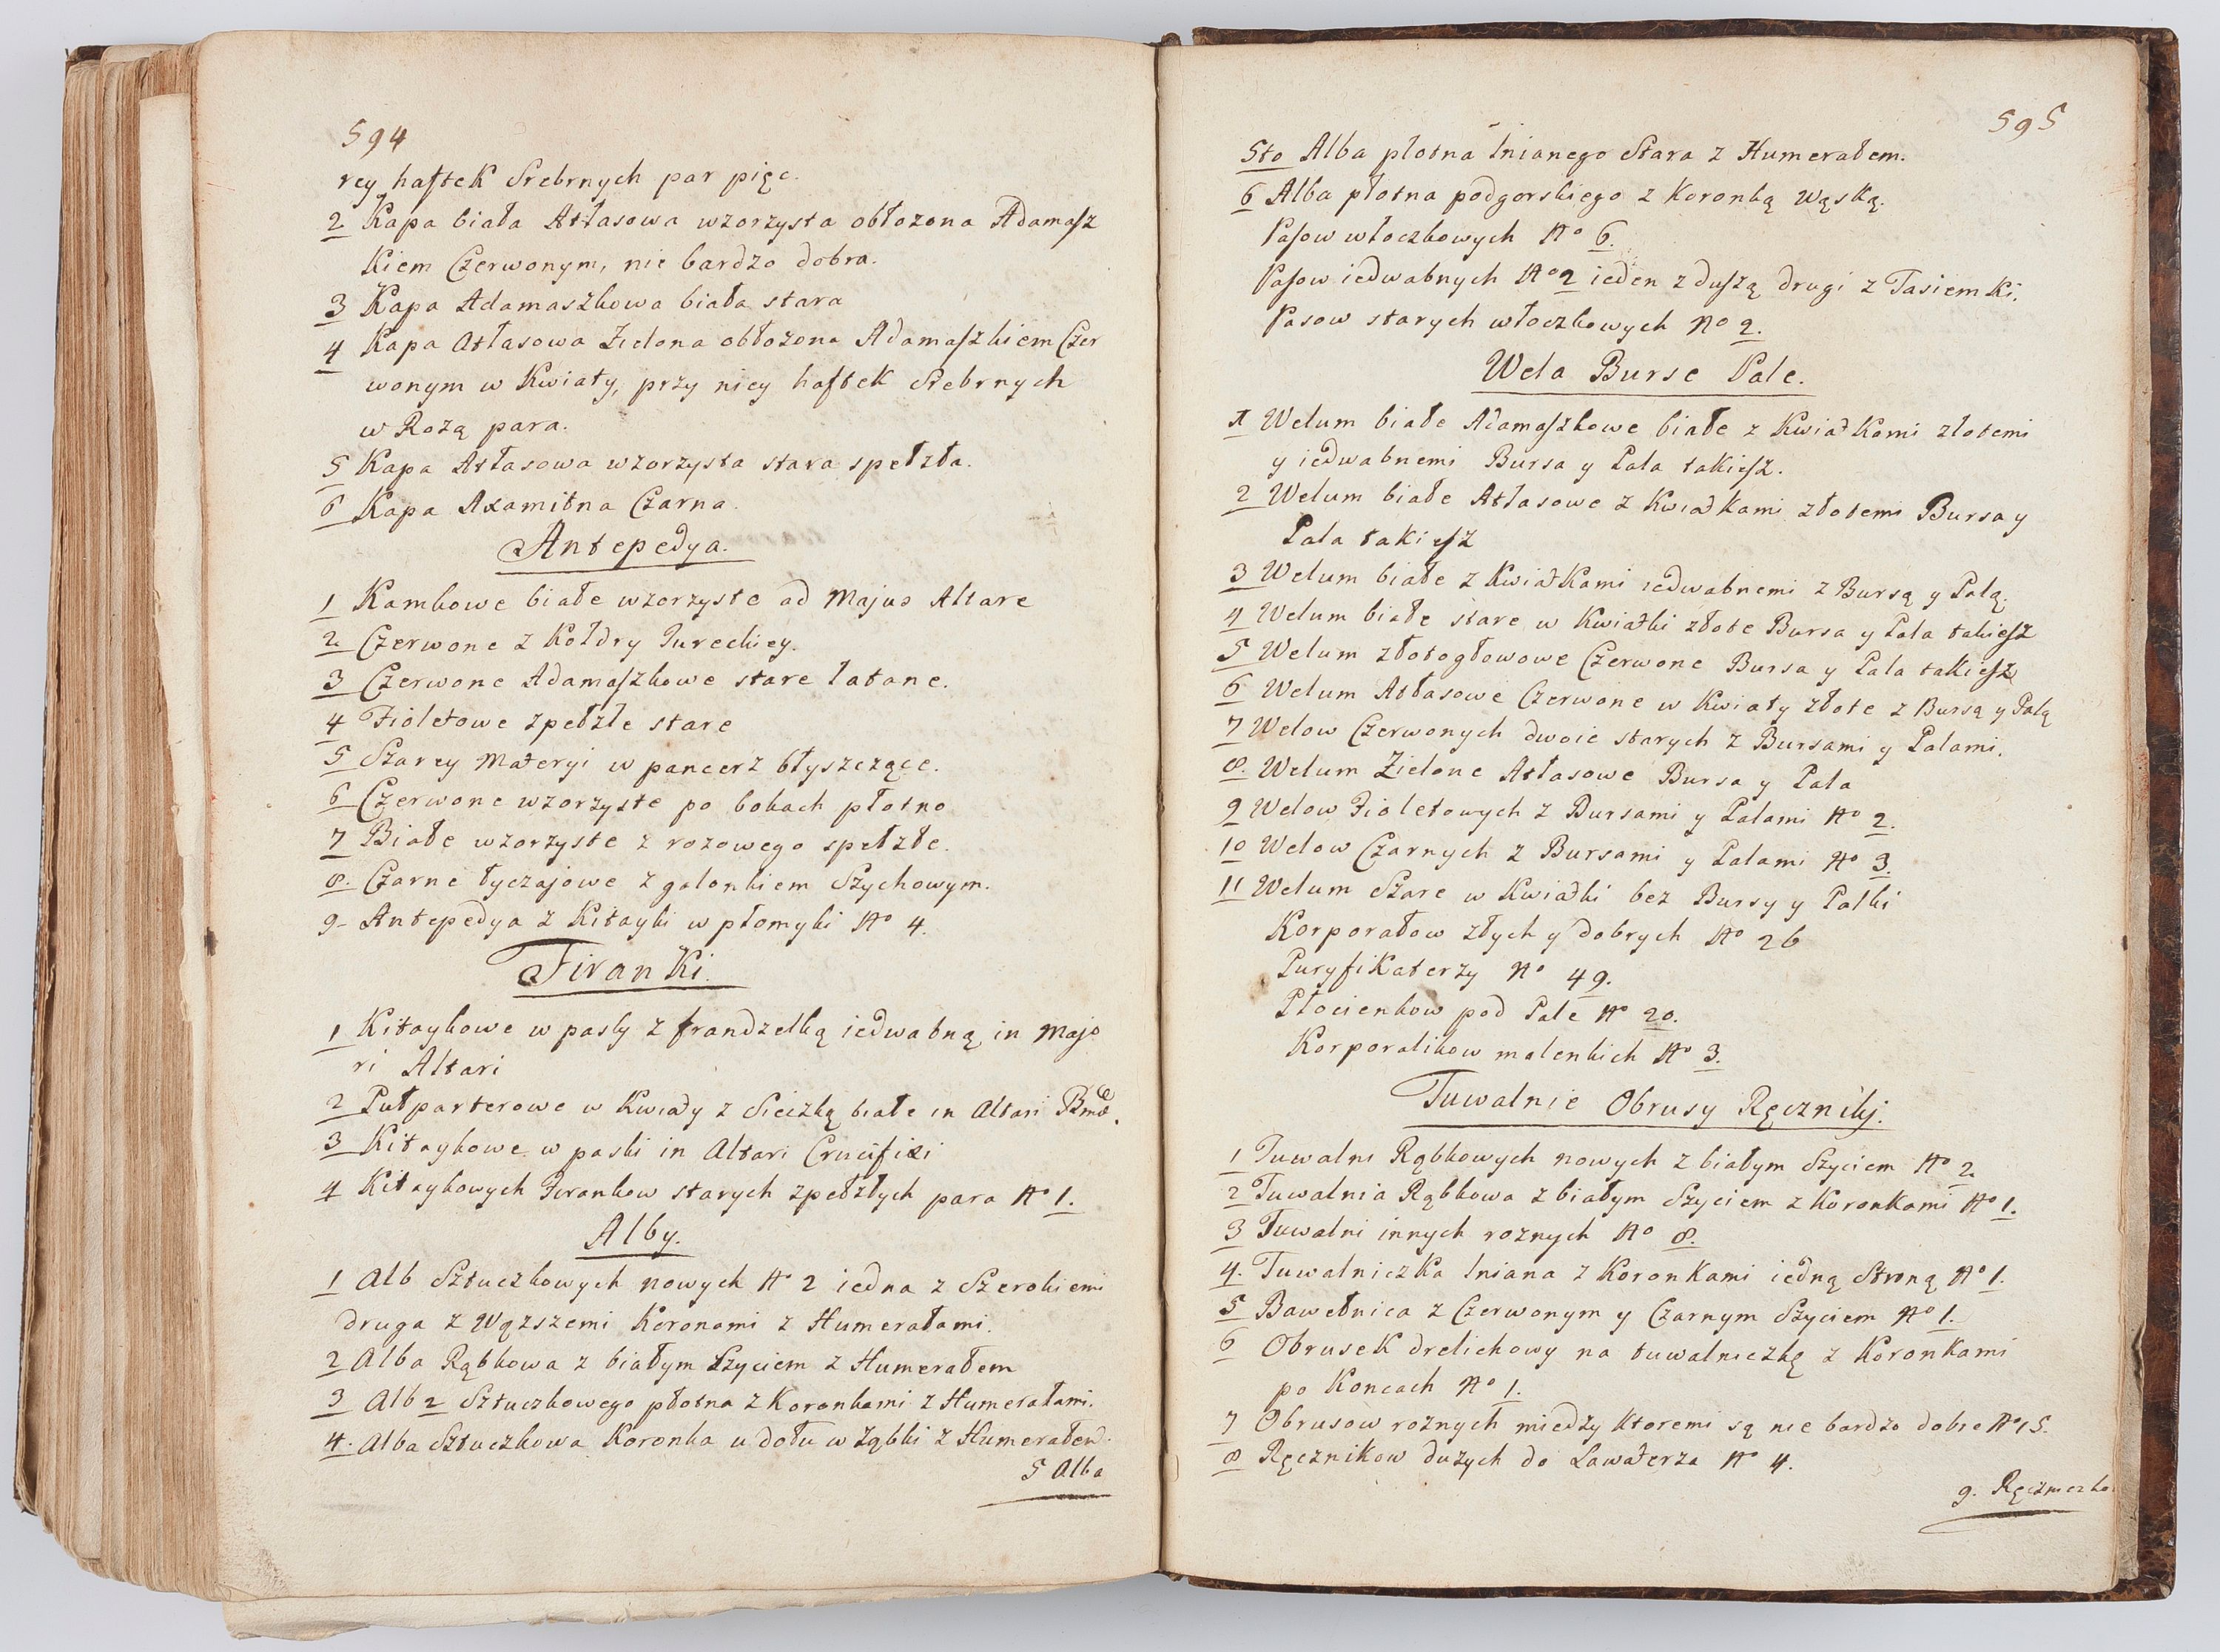 594
rey haftek Srebrnych par pięc.
2 Kapa biała Atłasowa wzorzysta obłozona Adamasz
kiem Czerwonym, nie bardzo dobra.
3 Kapa Adamaszkowa biała stara
4 Kapa Atłasowa Zielona obłożona Adamaszkiem Czer
wonym w Kwiaty, przy niey haftek Srebrnych
w Rozą para.
5 Kapa Atłasowa wzorzysta stara spełzła.
6 Kapa Axamitna Czarna.
Antepedya.
1 Kamkowe białe wzorzyste ad Majus Altare
2 Czerwone z Kołdry Tureckiey.
3 Czerwone Adamaszkowe stare łatane.
4 Fioletowe zpełzłe stare
5 Szarey Materyi w pancerz błyszczące.
6 Czerwone wzorzyste po bokach płotno
7 Białe wzorzyste z rozowego spełzłe.
8. Czarne łyczajowe z galonkiem Szychowym.
9- Antepedya z Kitayki w płomyki No 4.
Firanki.
1 Kitaykowe w pasky z frandzelką iedwabną in Majo
ri Altari
2 Pułparterowe w Kwiaty z Sieczką białe in Altari Bmæ.
3 Kitaykowe w paski in Altari Crucifixi
4 Kitaykowych Firankow starych zpełzłych para No 1.
Alby.
1 Alb Sztuczkowych nowych No 2 iedna z Szerokiemi
druga z Wązszemi Koronami z Humerałami.
2 Alba Rąbkowa z białym Szyciem z Humerałem
3 Alb 2 Sztuczkowego płotna z Koronkami z Humerałami.
4. Alba Sztuczkowa Koronka u dołu w Ząbki z Humerałem.
5 Alba
595
5to Alba płotna lnianego Stara z Humerałem.
6 Alba płotna podgorskiego z Koronką Wąską.
Pasow włoczkowych No 6.
Pasow iedwabnych No 2 ieden z duszą drugi z Tasiemki.
Pasow starych włoczkowych No 2.
Wela Burse Pale.
1 Welum białe Adamaszkowe białe z Kwiatkami złotemi
y iedwabnemi Bursa y Pala takiesz.
2 Welum białe Atłasowe z Kwiatkami złotemi Bursa y
Pala takiesz
3 Welum białe z Kwiatkami iedwabnemi z Bursą y Palą.
4 Welum białe stare w Kwiatki złote Bursa y Pala takiesz
5 Welum złotogłowowe Czerwone Bursa y Pala takiesz
6 Welum Atłasowe Czerwone w Kwiaty złote z Bursą y Palą
7 Welow Czerwonych dwoie starych z Bursami y Palami.
8. Welum Zielone Atłasowe Bursa y Pala
9 Welow Fioletowych z Bursami y Palami No 2.
10 Welow Czarnych z Bursami y Palami No 3.
11 Welum Szare w Kwiatki bez Bursy y Palki
Korporałow złych y dobrych No 26
Puryfikaterzy No 49.
Płocienkow pod Pale No 20.
Korporalikow malenkich No 3.
Tuwalnie Obrusy Ręczniky.
1 Tuwalni Rąbkowych nowych z białym Szyciem No 2
2 Tuwalnia Rąbkowa z białym Szyciem z Koronkami No 1.
3 Tuwalni innych roznych No 8.
4. Tuwalniczka lniana z Koronkami iedną Stroną No 1.
5 Bawełnica z Czerwonym y Czarnym Szyciem No 1.
6 Obrusek drelichowy na tuwalniczkę z Koronkami
po Koncach No 1.
7 Obrusow roznych miedzy ktoremi są nie bardzo dobre No 15.
8 Ręcznikow duzych do Lawaterza No 4.
9. Ręczniczko